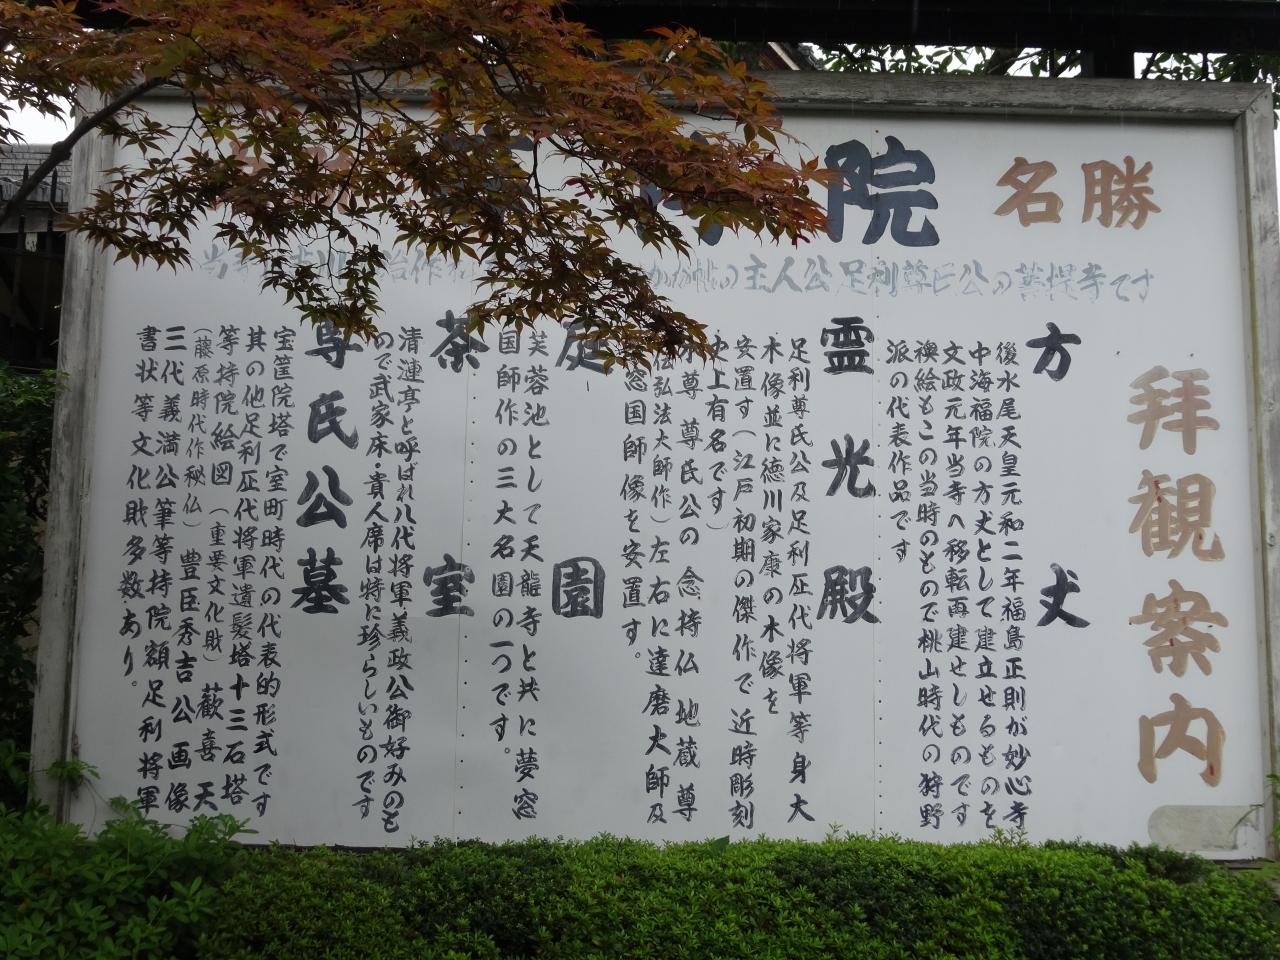 院
名勝
の主人公足利尊氏公の菩提寺です
拝観案内
方丈
後水尾天皇元和二年福島正則が妙心寺
中海福院の方丈として建立せるものを
文政元年当寺へ移転再建せしものです
襖絵もこの当時のもので桃山時代の狩野
派の代表作品です
霊光殿
足利尊氏公及足利歴代将軍等身大
木像並に徳川家康の木像を
安置す(江戸初期の傑作で近時彫刻
史上有名です)
本尊 尊氏公の念持仏地蔵尊
伝弘法大師作)左右に達磨大師及
窓国師像を安置す。
庭園
芙蓉池として天龍寺と共に夢窓
国師作の三大名園の一つです。
茶室
清漣亭と呼ばれ八代将軍義政公御好みのも
ので武家床・貴人席は特に珍らしいものです
尊氏公墓
宝筐院塔で室町時代の代表的形式です
其の他足利歴代将軍遺髪塔十三石塔
等持院絵図(重要文化財)歓喜天
(藤原時代作秘仏)豊臣秀吉公画像
三代義満公筆等持院額足利将軍
書状等文化財多数あり。